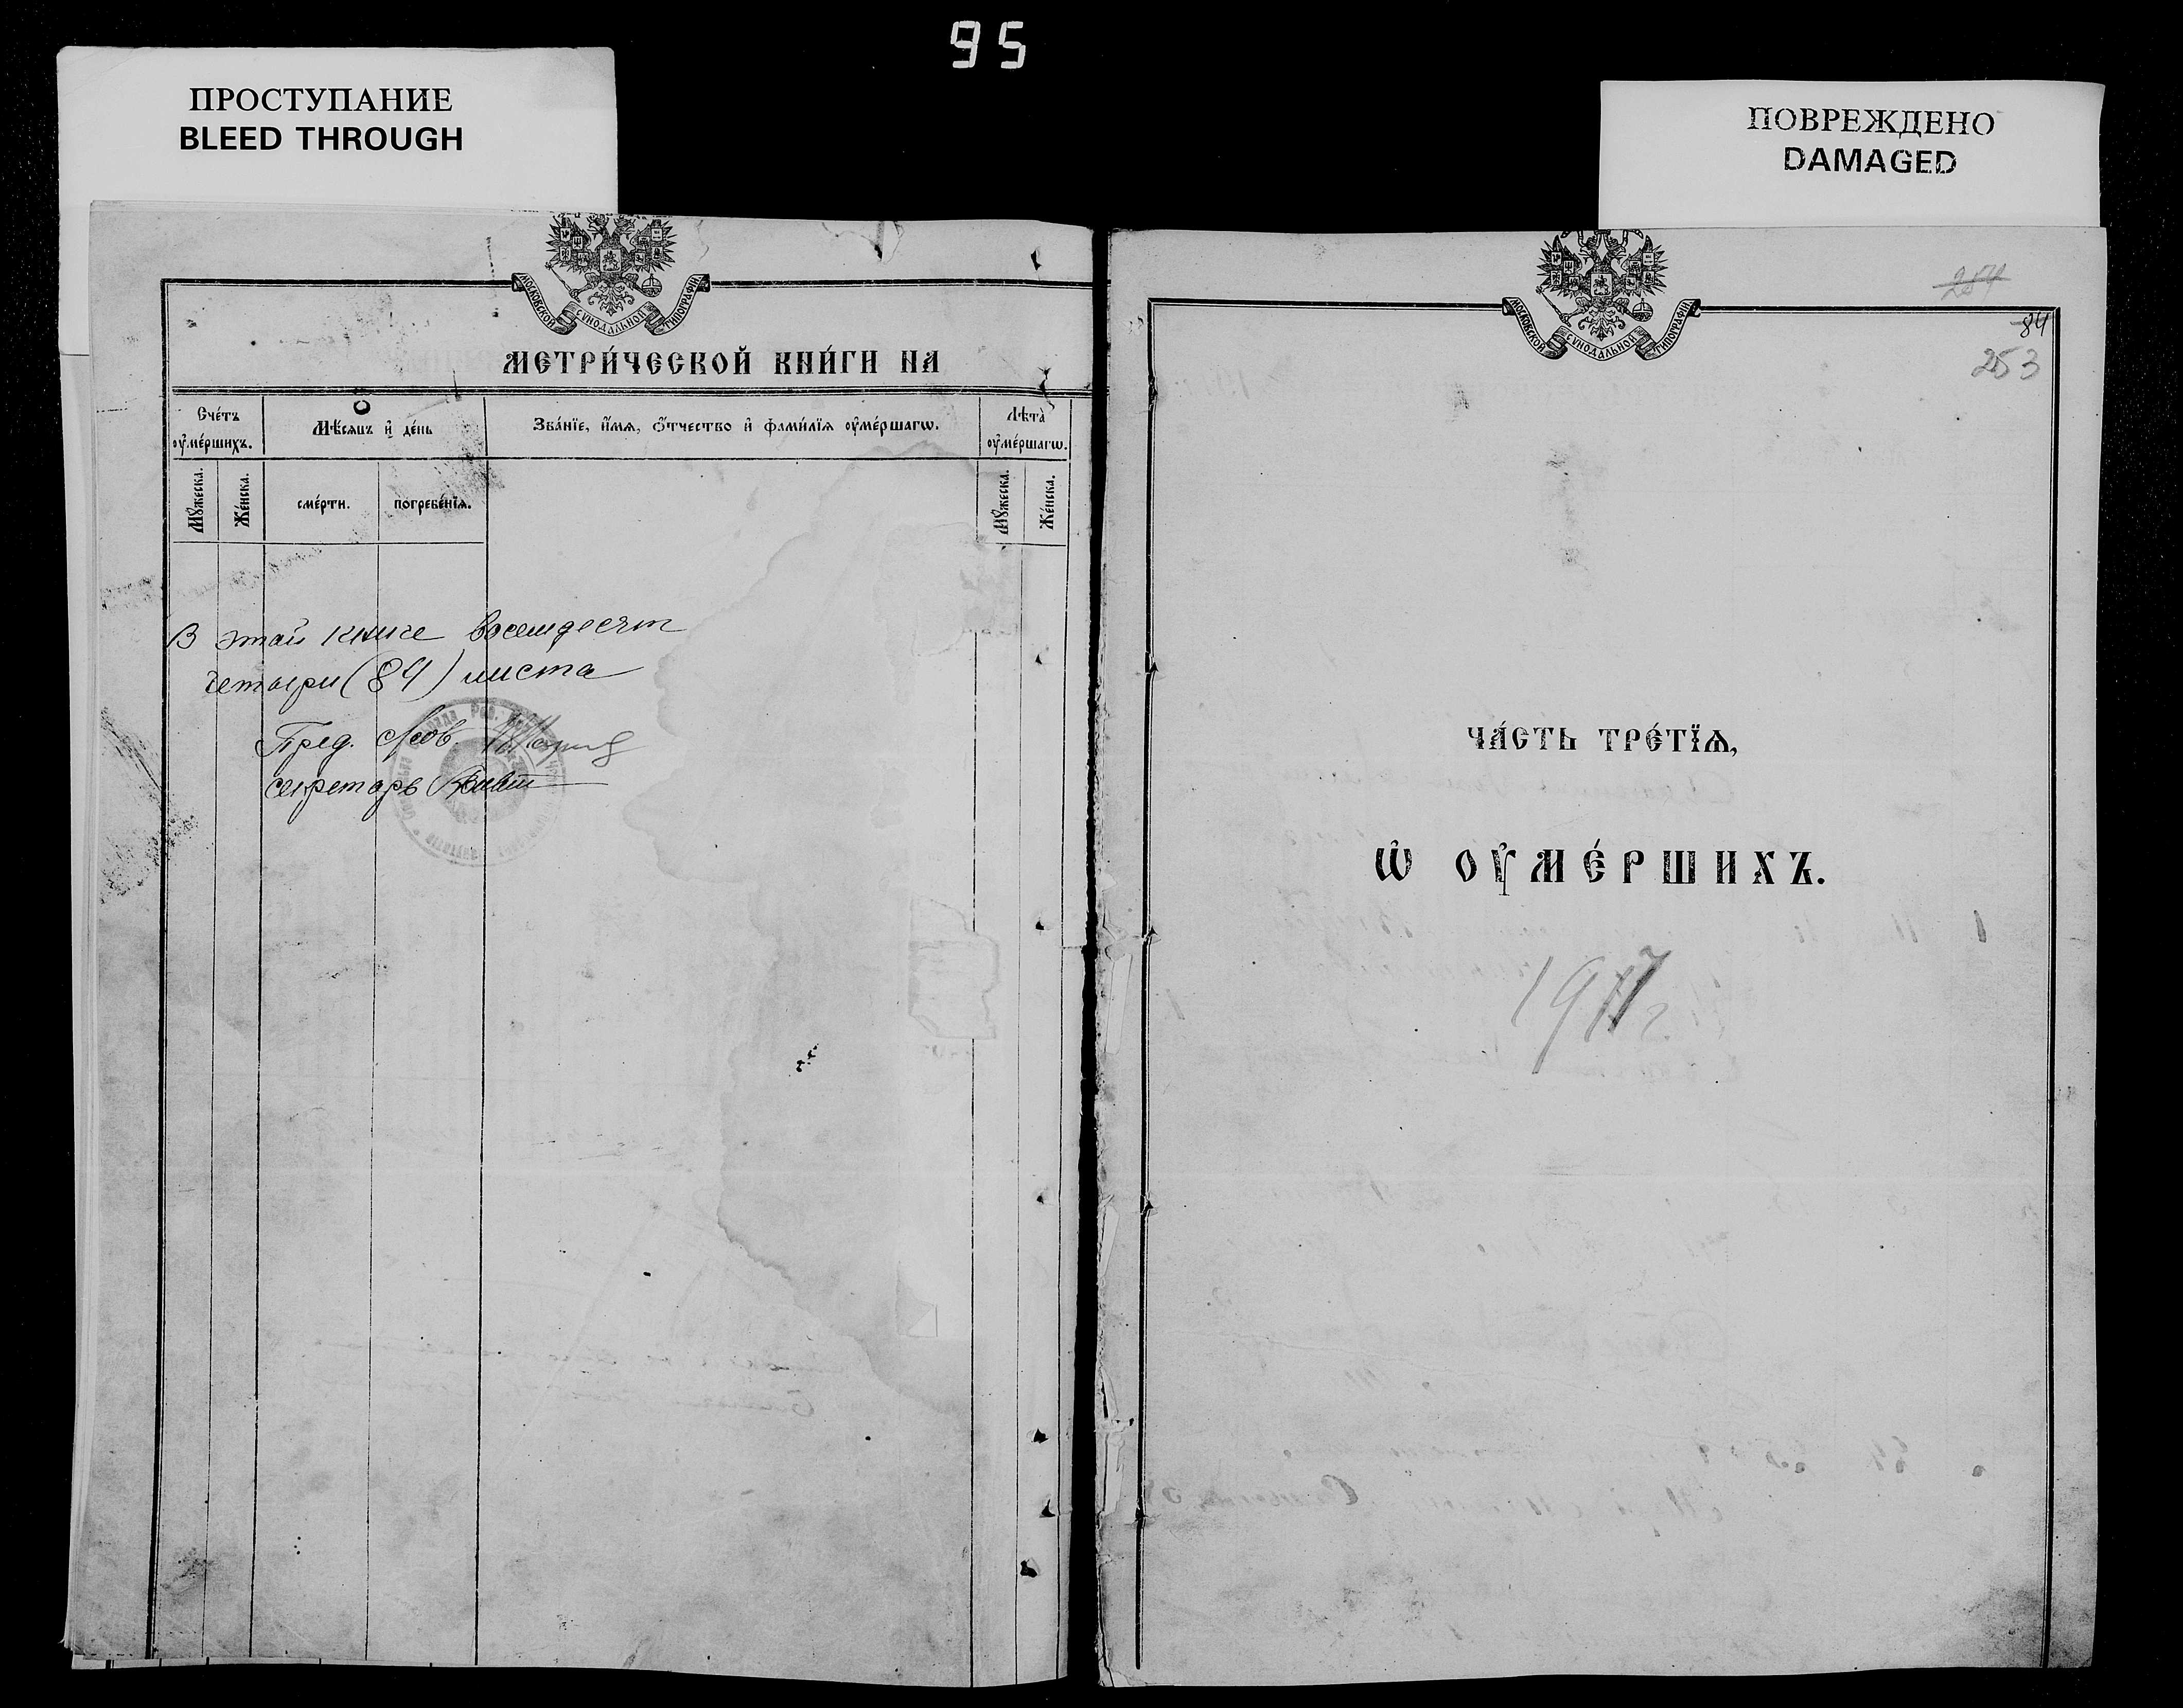 95
ПРОСТУПАНИЕ
BLEED THROUGH
ПОВРЕЖДЕНО
DAMAGED
МОСКОВСКОЙ СѴНОДАЛЬНОЙ ТИПОГРАФІИ
МЕТРИ́ЧЕСКОЙ КНИ́ГИ НА
Сче́тъ оу҆ме́ршихъ.
Мѣ́сѧцъ и҆ де́нь
Зва́нїе, и҆́мѧ, ѻ҆́тчество и҆ фами́лїѧ оу҆ме́ршагѡ.
Лѣ́та оу҆ме́ршагѡ.
Мꙋ́жеска.
Же́нска.
сме́рти.
погребе́нїѧ.
Мꙋ́жеска.
Же́нска.
В этой книге восемдесят
четыри (84) листа
Пред.
секретарь
МОСКОВСКОЙ СѴНОДАЛЬНОЙ ТИПОГРАФІИ
254
84
253
ЧА́СТЬ ТРЕ́ТЇѦ,
Ѡ҆ ОУ҆МЕ́РШИХЪ.
1917 г.